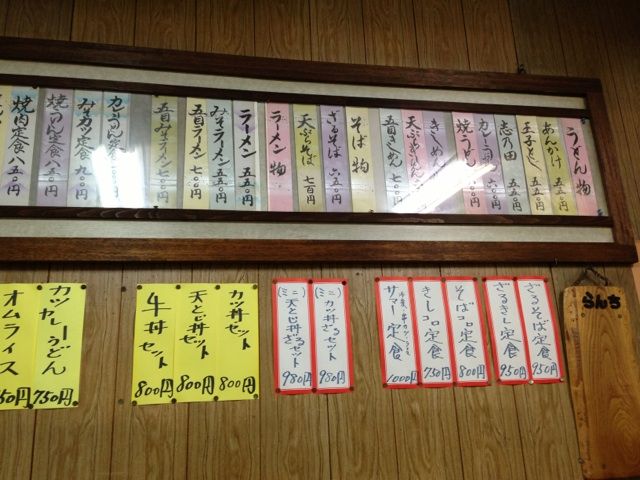 うどん物
あんかけ 五五〇円
玉子とじ 五五〇円
志乃田 五五〇円
カレーうどん 六五〇円
焼うどん
きしめん
天ぷらきしめん
五目きしめん 七〇〇円
そば物
ざるそば 六五〇円
天ぷらそば 七百円
ラーメン物
ラーメン 五五〇円
みそラーメン 五五〇円
五目ラーメン 七〇〇円
五目みそラーメン 七〇〇円
カレーうどん定食 八五〇円
みそカツ定食 九〇〇円
焼うどん定食 八五〇円
焼肉定食 八五〇円
らんち
ざるそば定食 950円
ざるきし定食 950円
そばコロ定食 800円
きしコロ定食 750円
サマー定食 1000円
(ミニ)カツ丼ざるセット 980円
(ミニ)天とじ丼ざるセット 980円
カツ丼セット 800円
天とじ丼セット 800円
牛丼セット 800円
カツカレーうどん 750円
オムライス